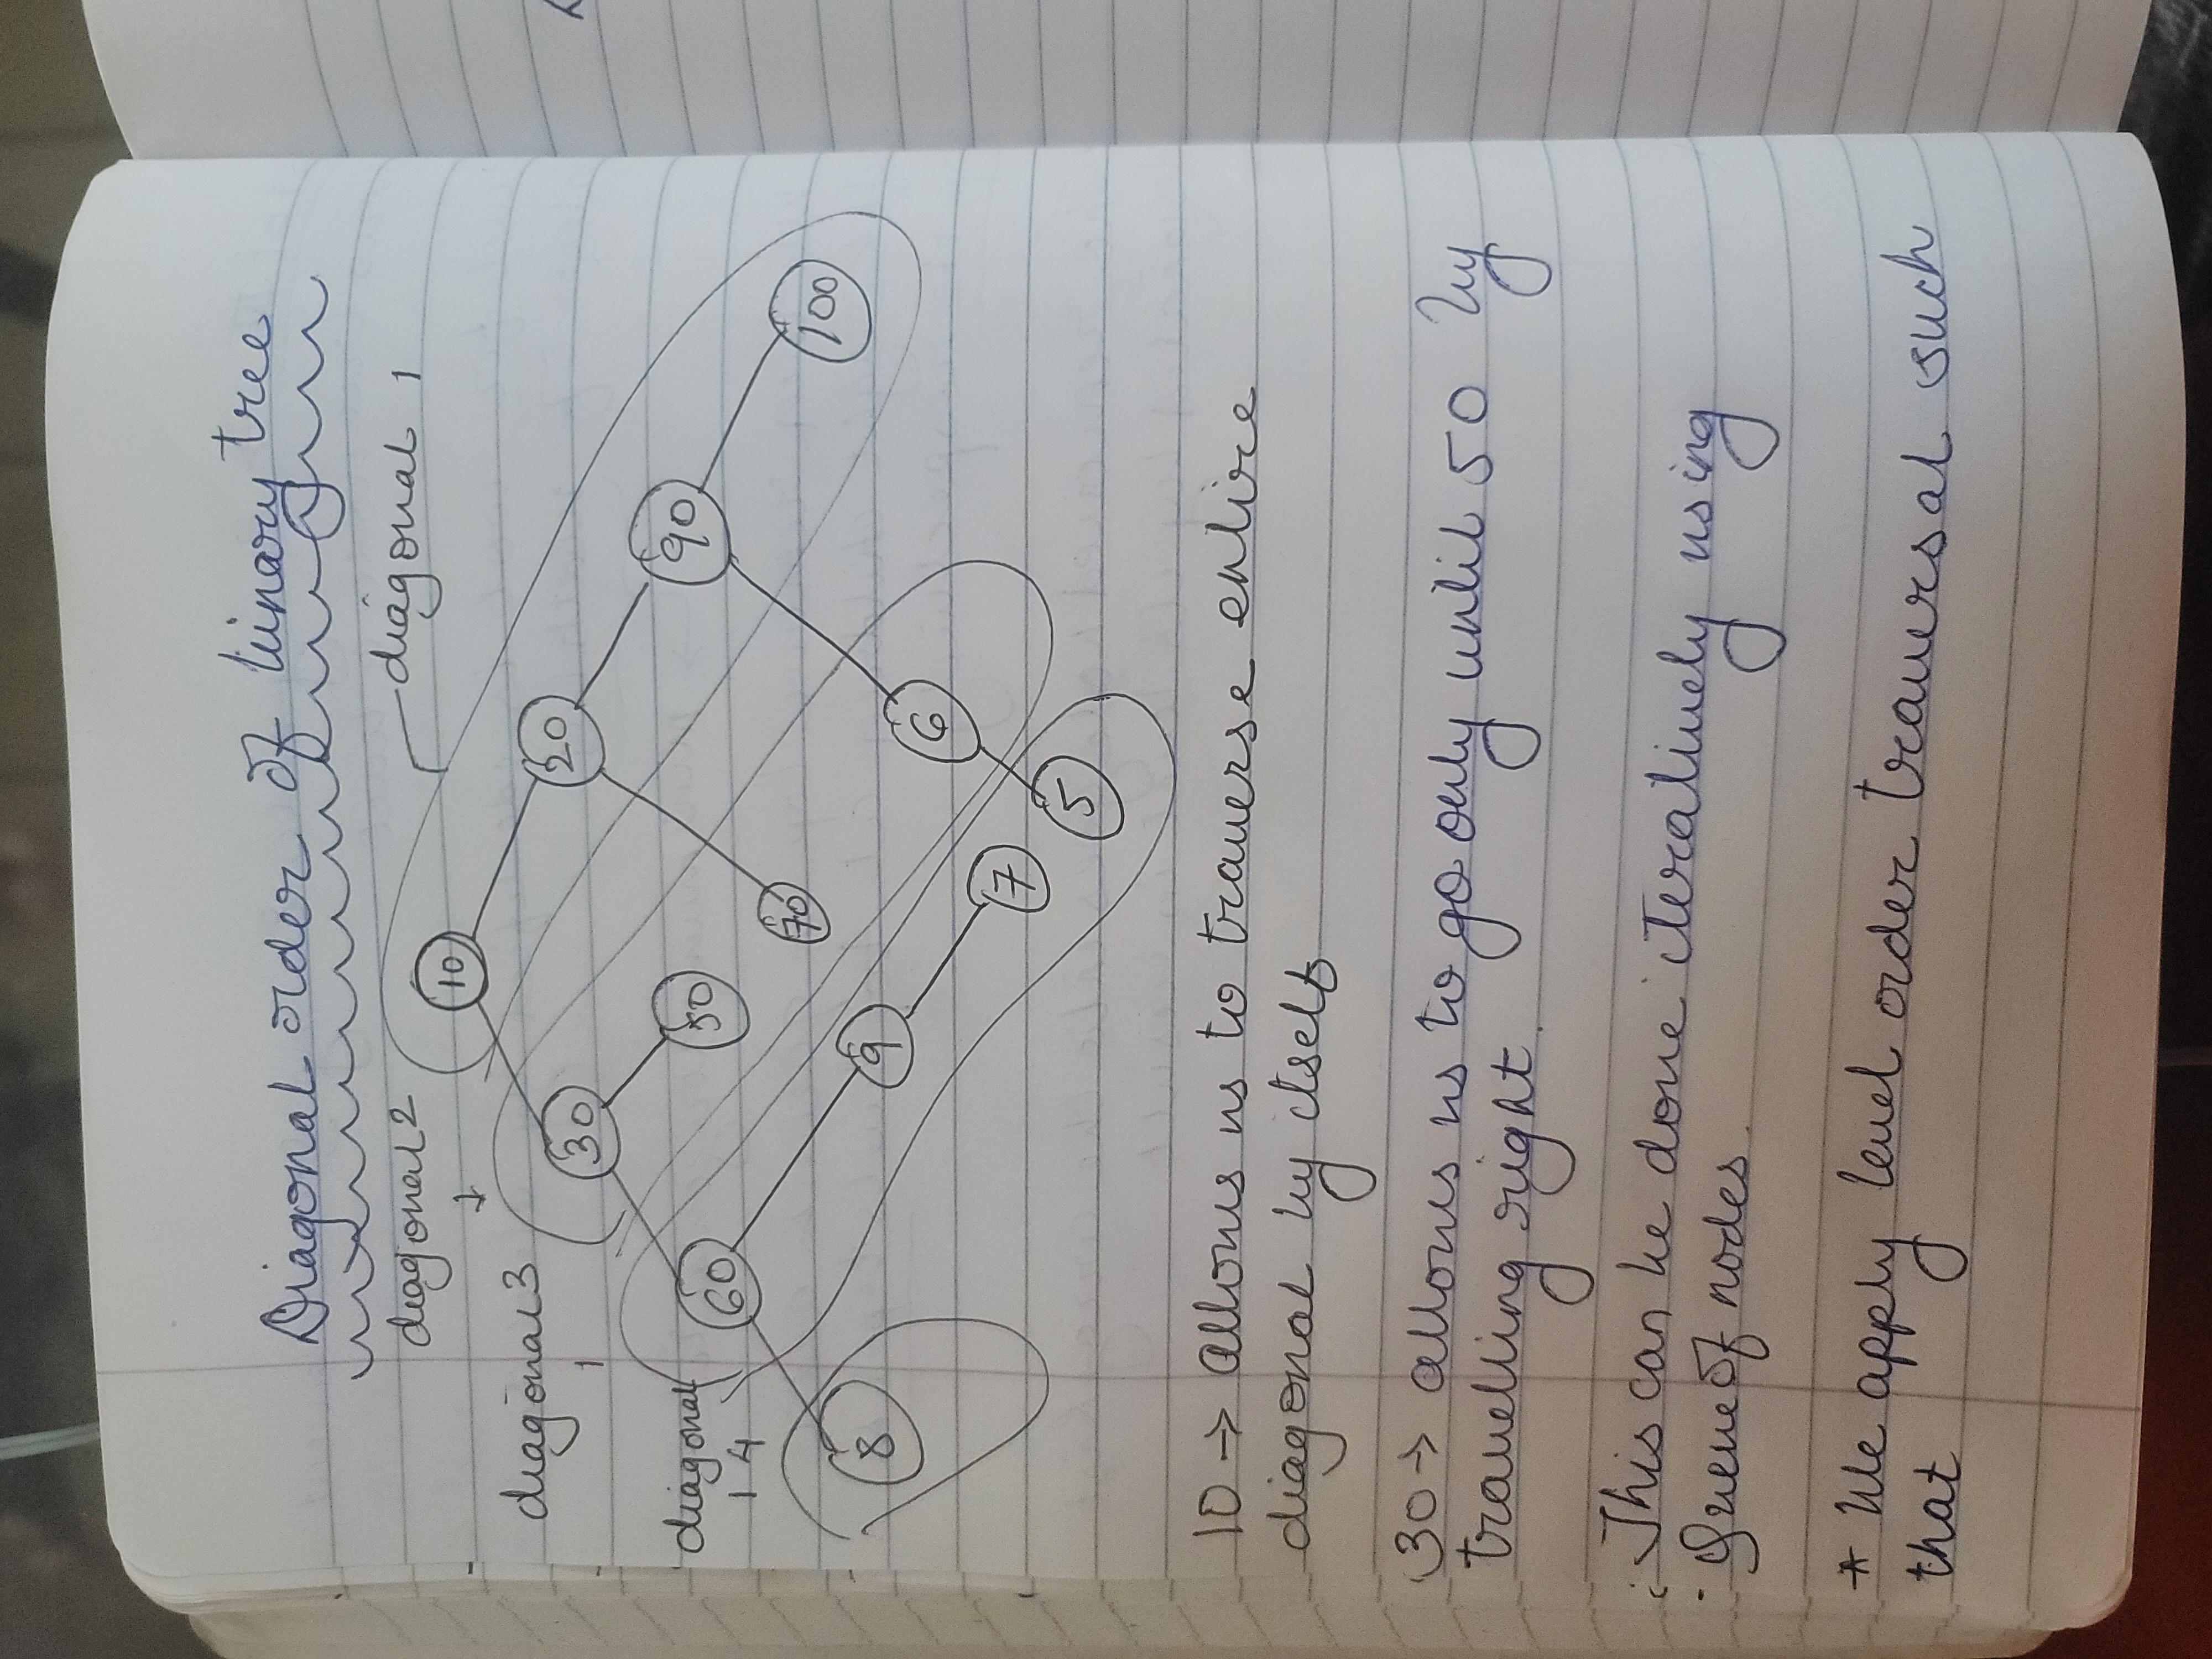 Diagonal order of binary tree
diagonal 2
diagonal 1
10
diagonal 3
1
30
20
diagonal
1 4
60
50
90
70
100
8
9
6
7
5
10 → allows us to traverse entire
diagonal by itself
30 → allows us to go only until 50 by
travelling right.
This can be done iteratively using
Queue of nodes.
* We apply level order traversal such
that